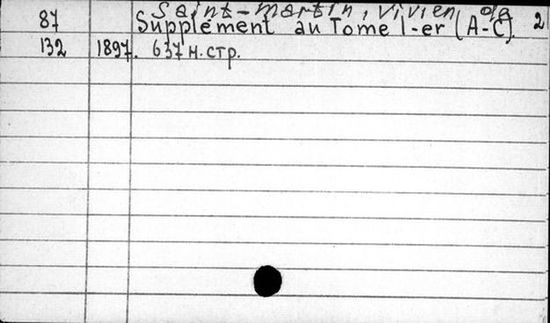 Saint-Martin, Vivien de 2
87 Supplément au Tome I-er (A-C).
132 1897. 637 н. стр.